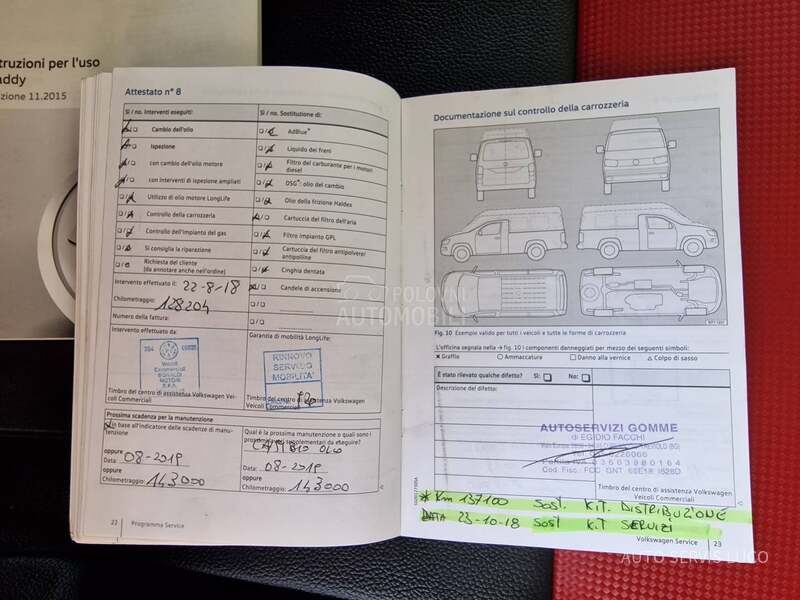 truzioni per l'uso
addy
zione 11.2015
Attestato n° 8
Sì / no. Interventi eseguiti:
Cambio dell'olio
Ispezione
con cambio dell'olio motore
con interventi di ispezione ampliati
Utilizzo di olio motore LongLife
Controllo della carrozzeria
Controllo dell'impianto del gas
Si consiglia la riparazione
Richiesta del cliente
(da annotare anche nell'ordine)
Intervento effettuato il: 22-8-18
Chilometraggio: 128204
Numero della fattura:
Intervento effettuato da:
Timbro del centro di assistenza Volkswagen Vei-
coli Commerciali
Sì / no. Sostituzione di:
AdBlue®
Liquido dei freni
Filtro del carburante per i motori
diesel
DSG®: olio del cambio
Olio della frizione Haldex
Cartuccia del filtro dell'aria
Filtro impianto GPL
Cartuccia del filtro antipolvere/
antipolline
Cinghia dentata
Candele di accensione
Garanzia di mobilità LongLife:
RINNOVO
SERVIZIO
MOBILITA'
Timbro del centro di assistenza Volkswagen
Veicoli Commerciali
Prossima scadenza per la manutenzione
in base all'indicatore delle scadenze di manu-
tenzione
oppure
Data: 08-2019
oppure
Chilometraggio: 143000
Qual è la prossima manutenzione o quali sono i
CAMBIO OLIO
oppure
Data: 08-2019
oppure
Chilometraggio: 143000
22 Programma Service
Documentazione sul controllo della carrozzeria
Fig. 10 Esempio valido per tutti i veicoli e tutte le forme di carrozzeria
L'officina segnala nella → fig. 10 i componenti danneggiati per mezzo dei seguenti simboli:
Graffio Ammaccatura Danno alla vernice Colpo di sasso
È stato rilevato qualche difetto? Sì: No:
Descrizione del difetto:
AUTOSERVIZI GOMME
di EGIDIO FACCHI
Timbro del centro di assistenza Volkswagen
Veicoli Commerciali
* Km 137100 SOST. KIT. DISTRIBUZIONE
DATA 23-10-18 SOST KIT SERVIZI
Volkswagen Service 23
POLOVNI
AUTOMOBILI
AUTO SERVIS LUCO